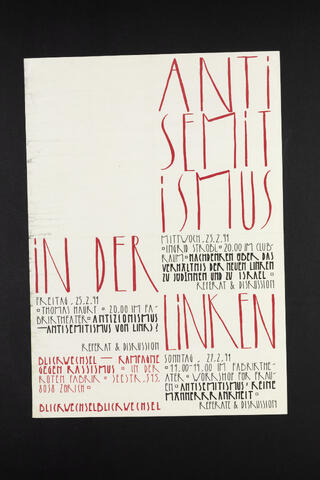 ANTI
SEMIT
ISMUS
IN DER
LINKEN
MITTWOCH, 23.2.94
INGRID STROBL 20.00 IM CLUB-
RAUM NACHDENKEN ÜBER DAS
VERHÄLTNIS DER NEUEN LINKEN
ZU JÜDINNEN UND ZU ISRAEL
REFERAT & DISKUSSION
FREITAG, 25.2.94
THOMAS HAURY 20.00 IM FA-
BRIKTHEATER ANTIZIONISMUS
—ANTISEMITISMUS VON LINKS?
REFERAT & DISKUSSION
SONNTAG, 27.2.94
FABRIKTHE-
ATER WORKSHOP FÜR FRAU-
EN ANTISEMITISMUS' REINE
MÄNNERKRANKHEIT
REFERATE & DISKUSSION
BLICKWECHSEL — KAMPAGNE
GEGEN RASSISMUS IN DER
ROTEN FABRIK SEESTR. 395,
8038 ZÜRICH
BLICKWECHSELBLICKWECHSEL